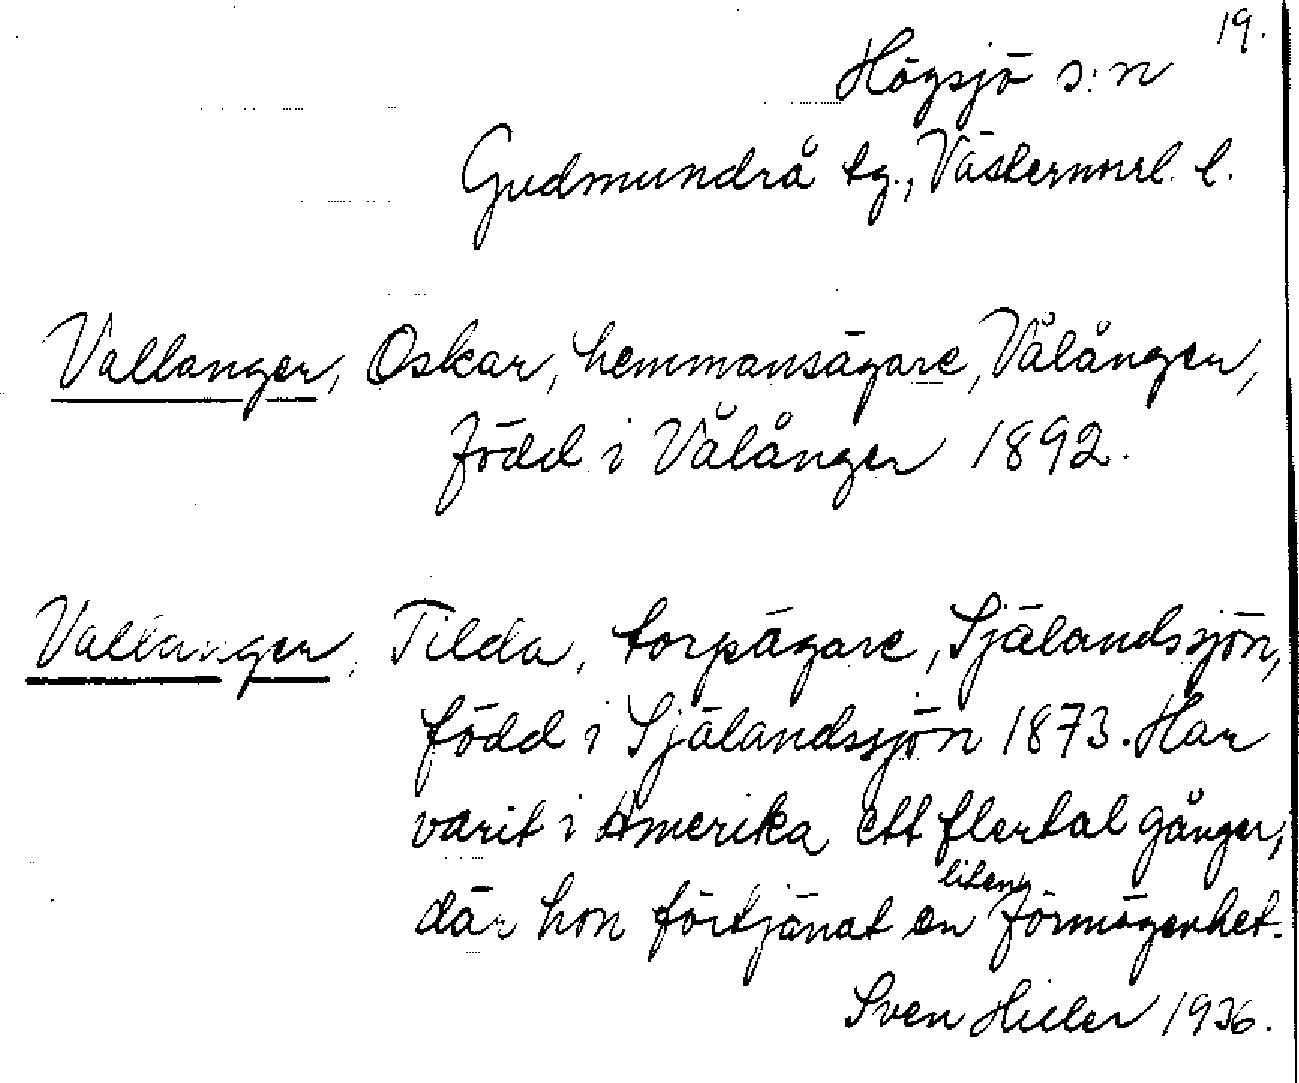 19.
Högsjö s:n
Gudmundrå tg., Västernorrl. l.
Vallanger, Oskar, hemmansägare, Vålånger,
född i Vålånger 1892.
Vallanger, Tilda, torpägare, Själandssjön,
född i Själandssjön 1873. Har
varit i Amerika ett flertal gånger,
där hon förtjänat en liten förmögenhet.
Sven Hieler 1936.